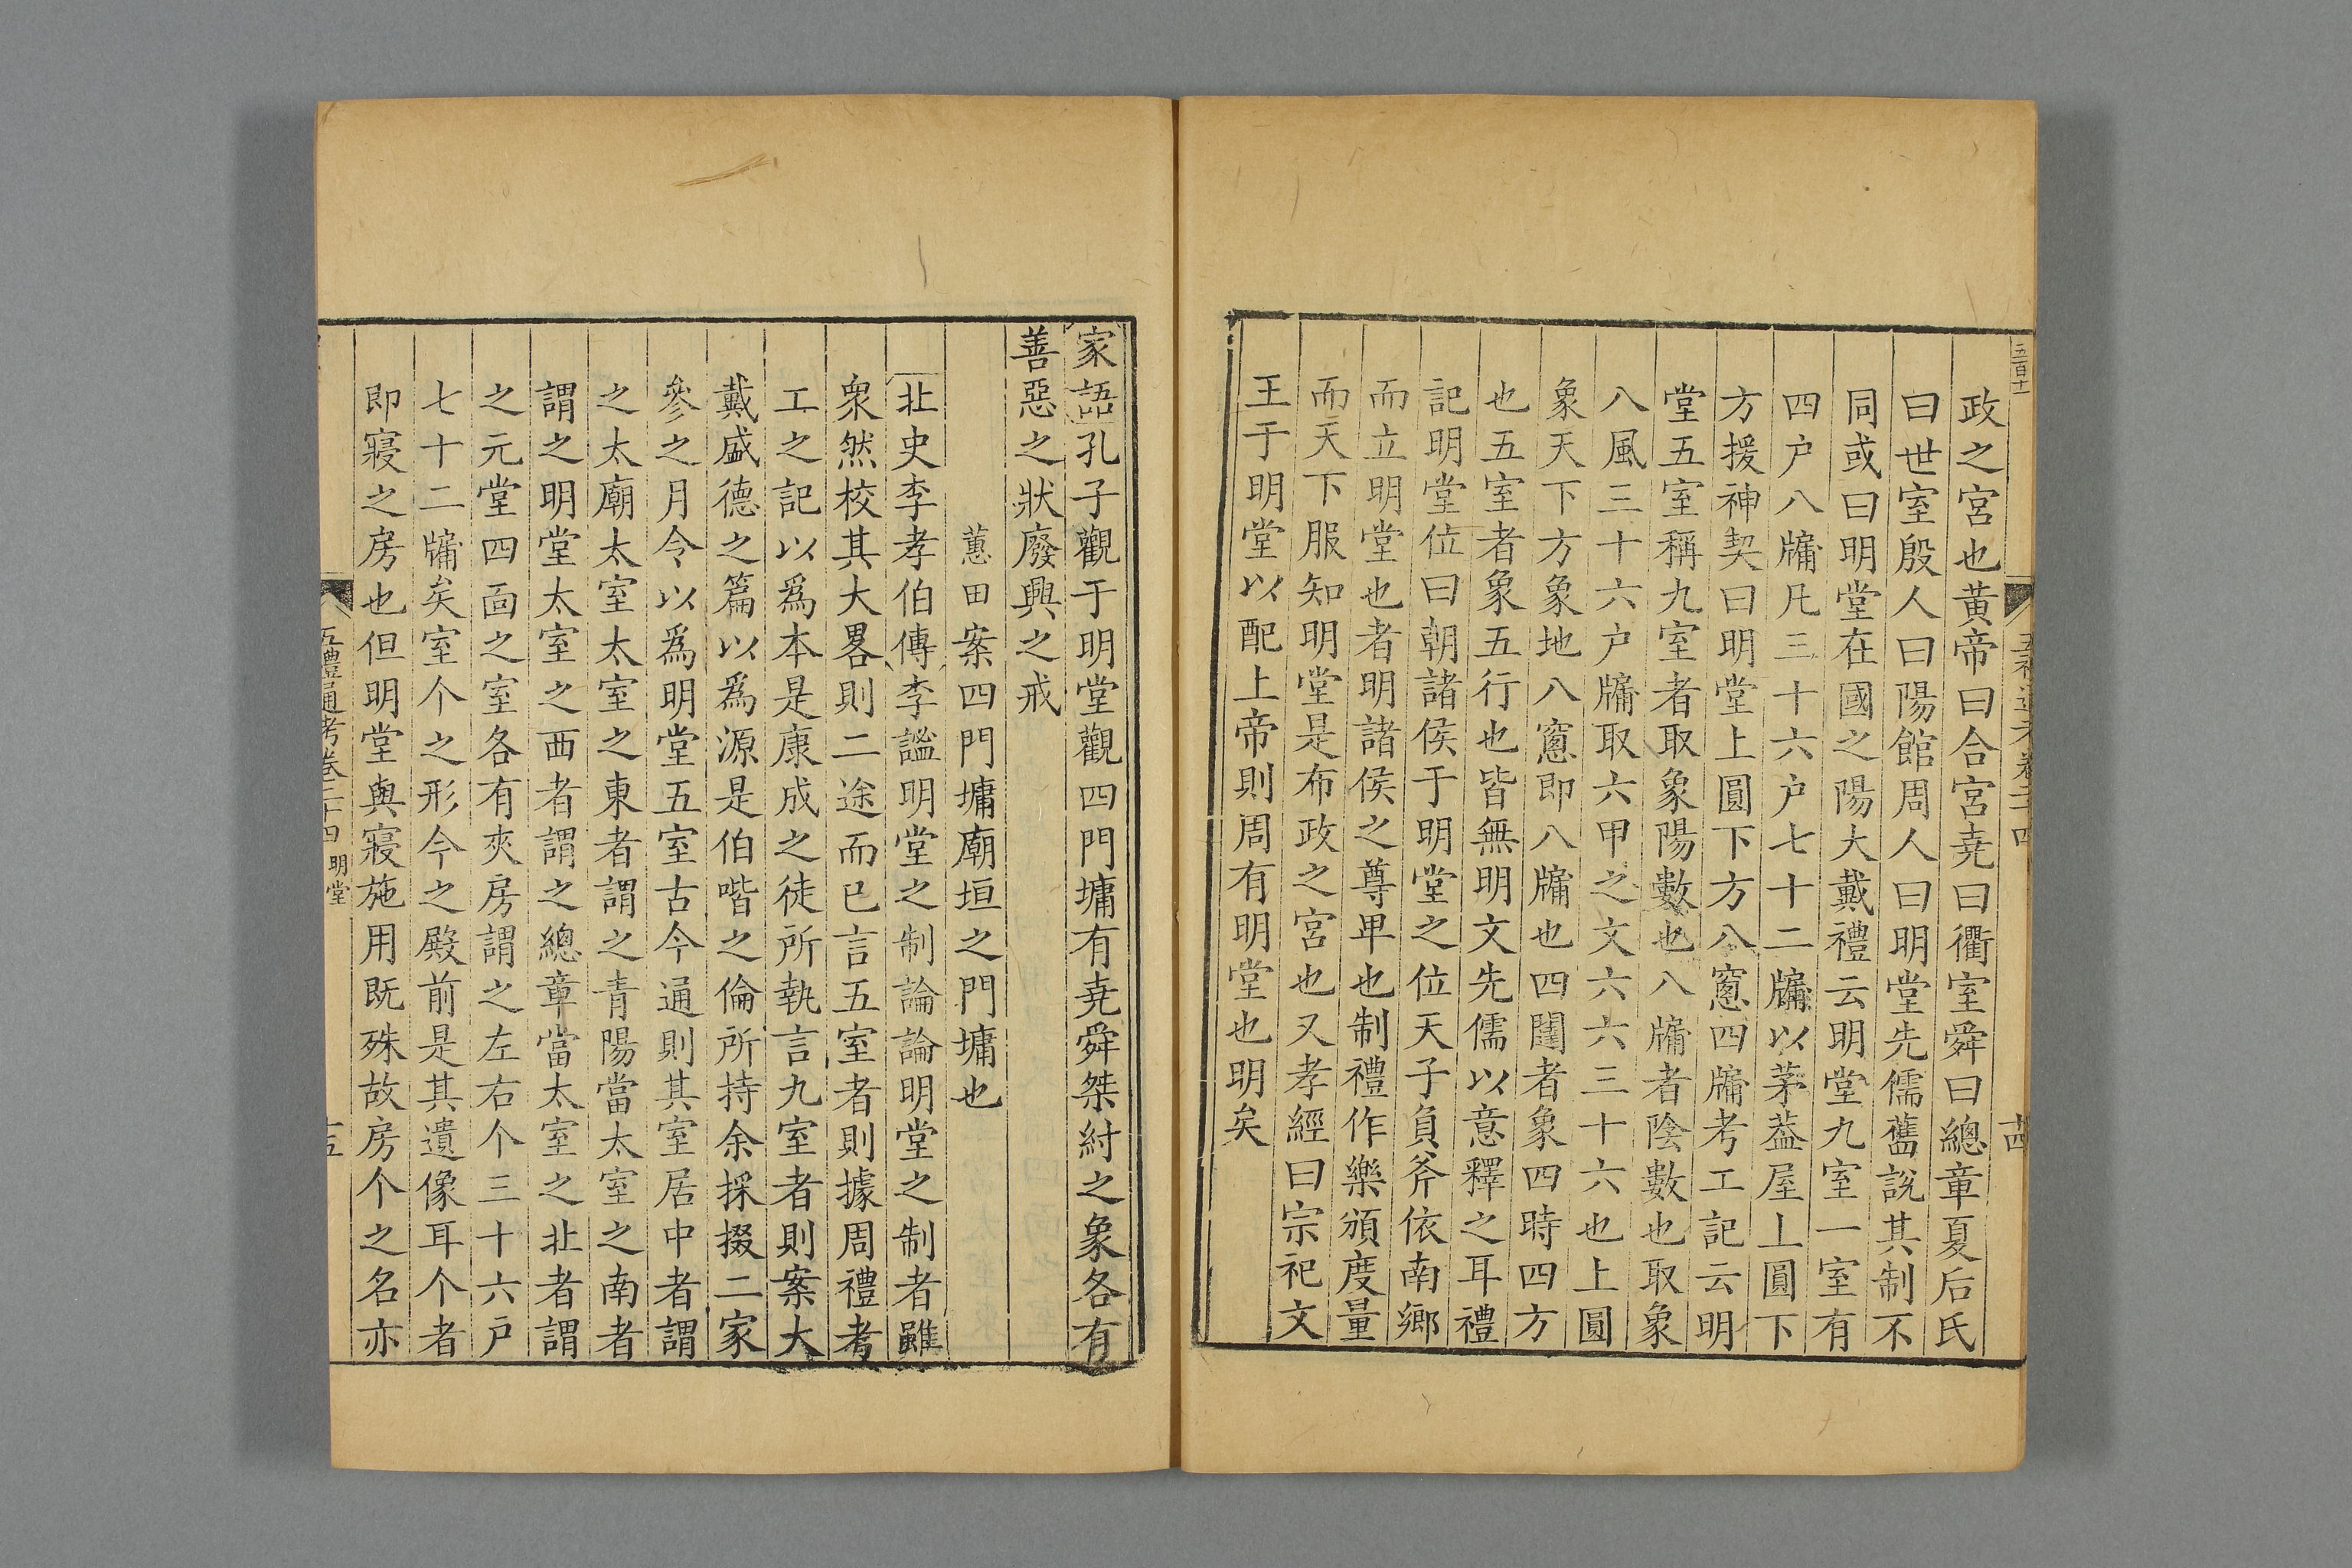 五百十
五禮通考卷二十四
十四
政之宮也黃帝曰合宮堯曰衢室舜曰總章夏后氏
曰世室殷人曰陽館周人曰明堂先儒舊說其制不
同或曰明堂在國之陽大戴禮云明堂九室一室有
四户八牖凡三十六户七十二牖以茅葢屋上圓下
方援神契曰明堂上圓下方八窻四牖考工記云明
堂五室稱九室者取象陽數也八牖者陰數也取象
八風三十六户牖取六甲之文六六三十六也上圓
象天下方象地八窻即八牖也四闥者象四時四方
也五室者象五行也皆無明文先儒以意釋之耳禮
記明堂位曰朝諸侯于明堂之位天子負斧依南鄉
而立明堂也者明諸侯之尊卑也制禮作樂頒度量
而天下服知明堂是布政之宮也又孝經曰宗祀文
王于明堂以配上帝則周有明堂也明矣
家語孔子觀于明堂觀四門墉有堯舜桀紂之象各有
善惡之狀廢興之戒
蕙田案四門墉廟垣之門墉也
北史李孝伯傳李謐明堂之制論論明堂之制者雖
衆然校其大畧則二途而已言五室者則據周禮考
工之記以爲本是康成之徒所執言九室者則案大
戴盛德之篇以爲源是伯喈之倫所持余採掇二家
參之月令以爲明堂五室古今通則其室居中者謂
之太廟太室太室之東者謂之青陽當太室之南者
謂之明堂太室之西者謂之總章當太室之北者謂
之元堂四面之室各有夾房謂之左右个三十六戸
七十二牖矣室个之形今之殿前是其遺像耳个者
即寢之房也但明堂與寢施用既殊故房个之名亦
五禮通考卷二十四 明堂
十五